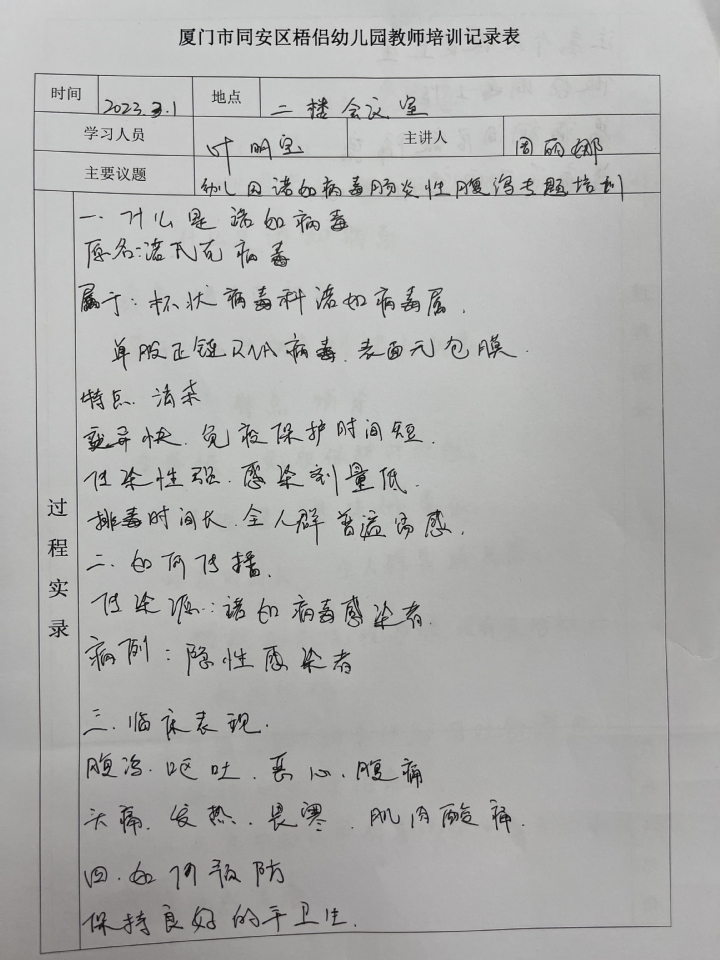 厦门市同安区梧侣幼儿园教师培训记录表
时间 2023.3.1 地点 二楼会议室
学习人员 叶明宝 主讲人 周丽娜
主要议题 幼儿园诺如病毒肠炎性腹泻专题培训
过程实录
一.什么是诺如病毒
原名:诺瓦克病毒
属于:杯状病毒科诺如病毒属.
单股正链RNA病毒.表面无包膜.
特点.
变异快.免疫保护时间短.
传染性强.感染剂量低.
排毒时间长.全人群普遍易感.
二.如何传播.
传染源:诺如病毒感染者.
病例:隐性感染者
三.临床表现.
腹泻.呕吐.恶心.腹痛
头痛.发热.畏寒.肌肉酸痛.
四.如何预防
保持良好的手卫生.